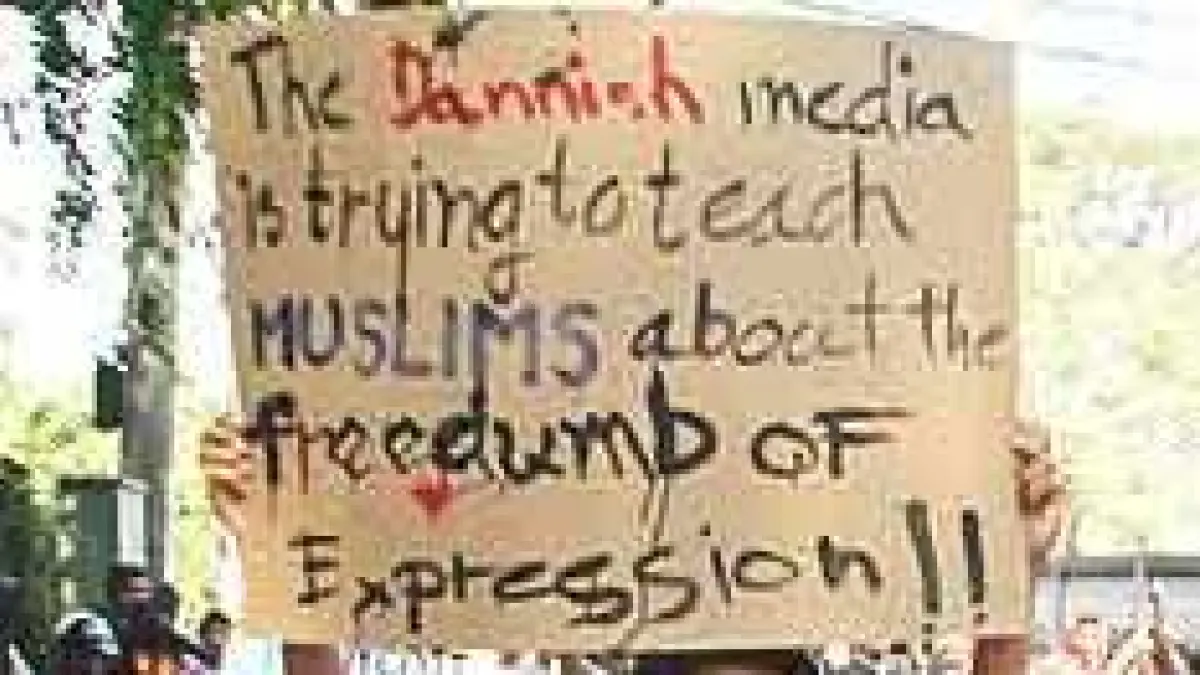 The Dannish media
is trying to teach
MUSLIMS about the
freedumb OF
Expression!!